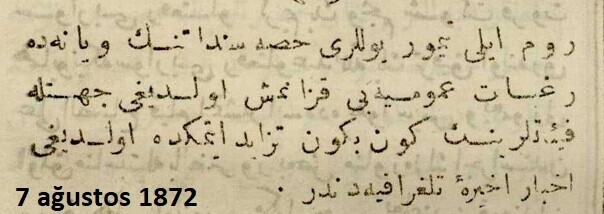 روم ایلی تیمور یوللری حصه سنداتنك ویانه‌ده
رغبات عمومیه‌یی قزانمش اولدیغی جهتله
فیئتلرینك كون بكون تزاید ایتمكده اولدیغی
اخبار اخیرهٔ تلغرافیه‌دندر .
7 ağustos 1872